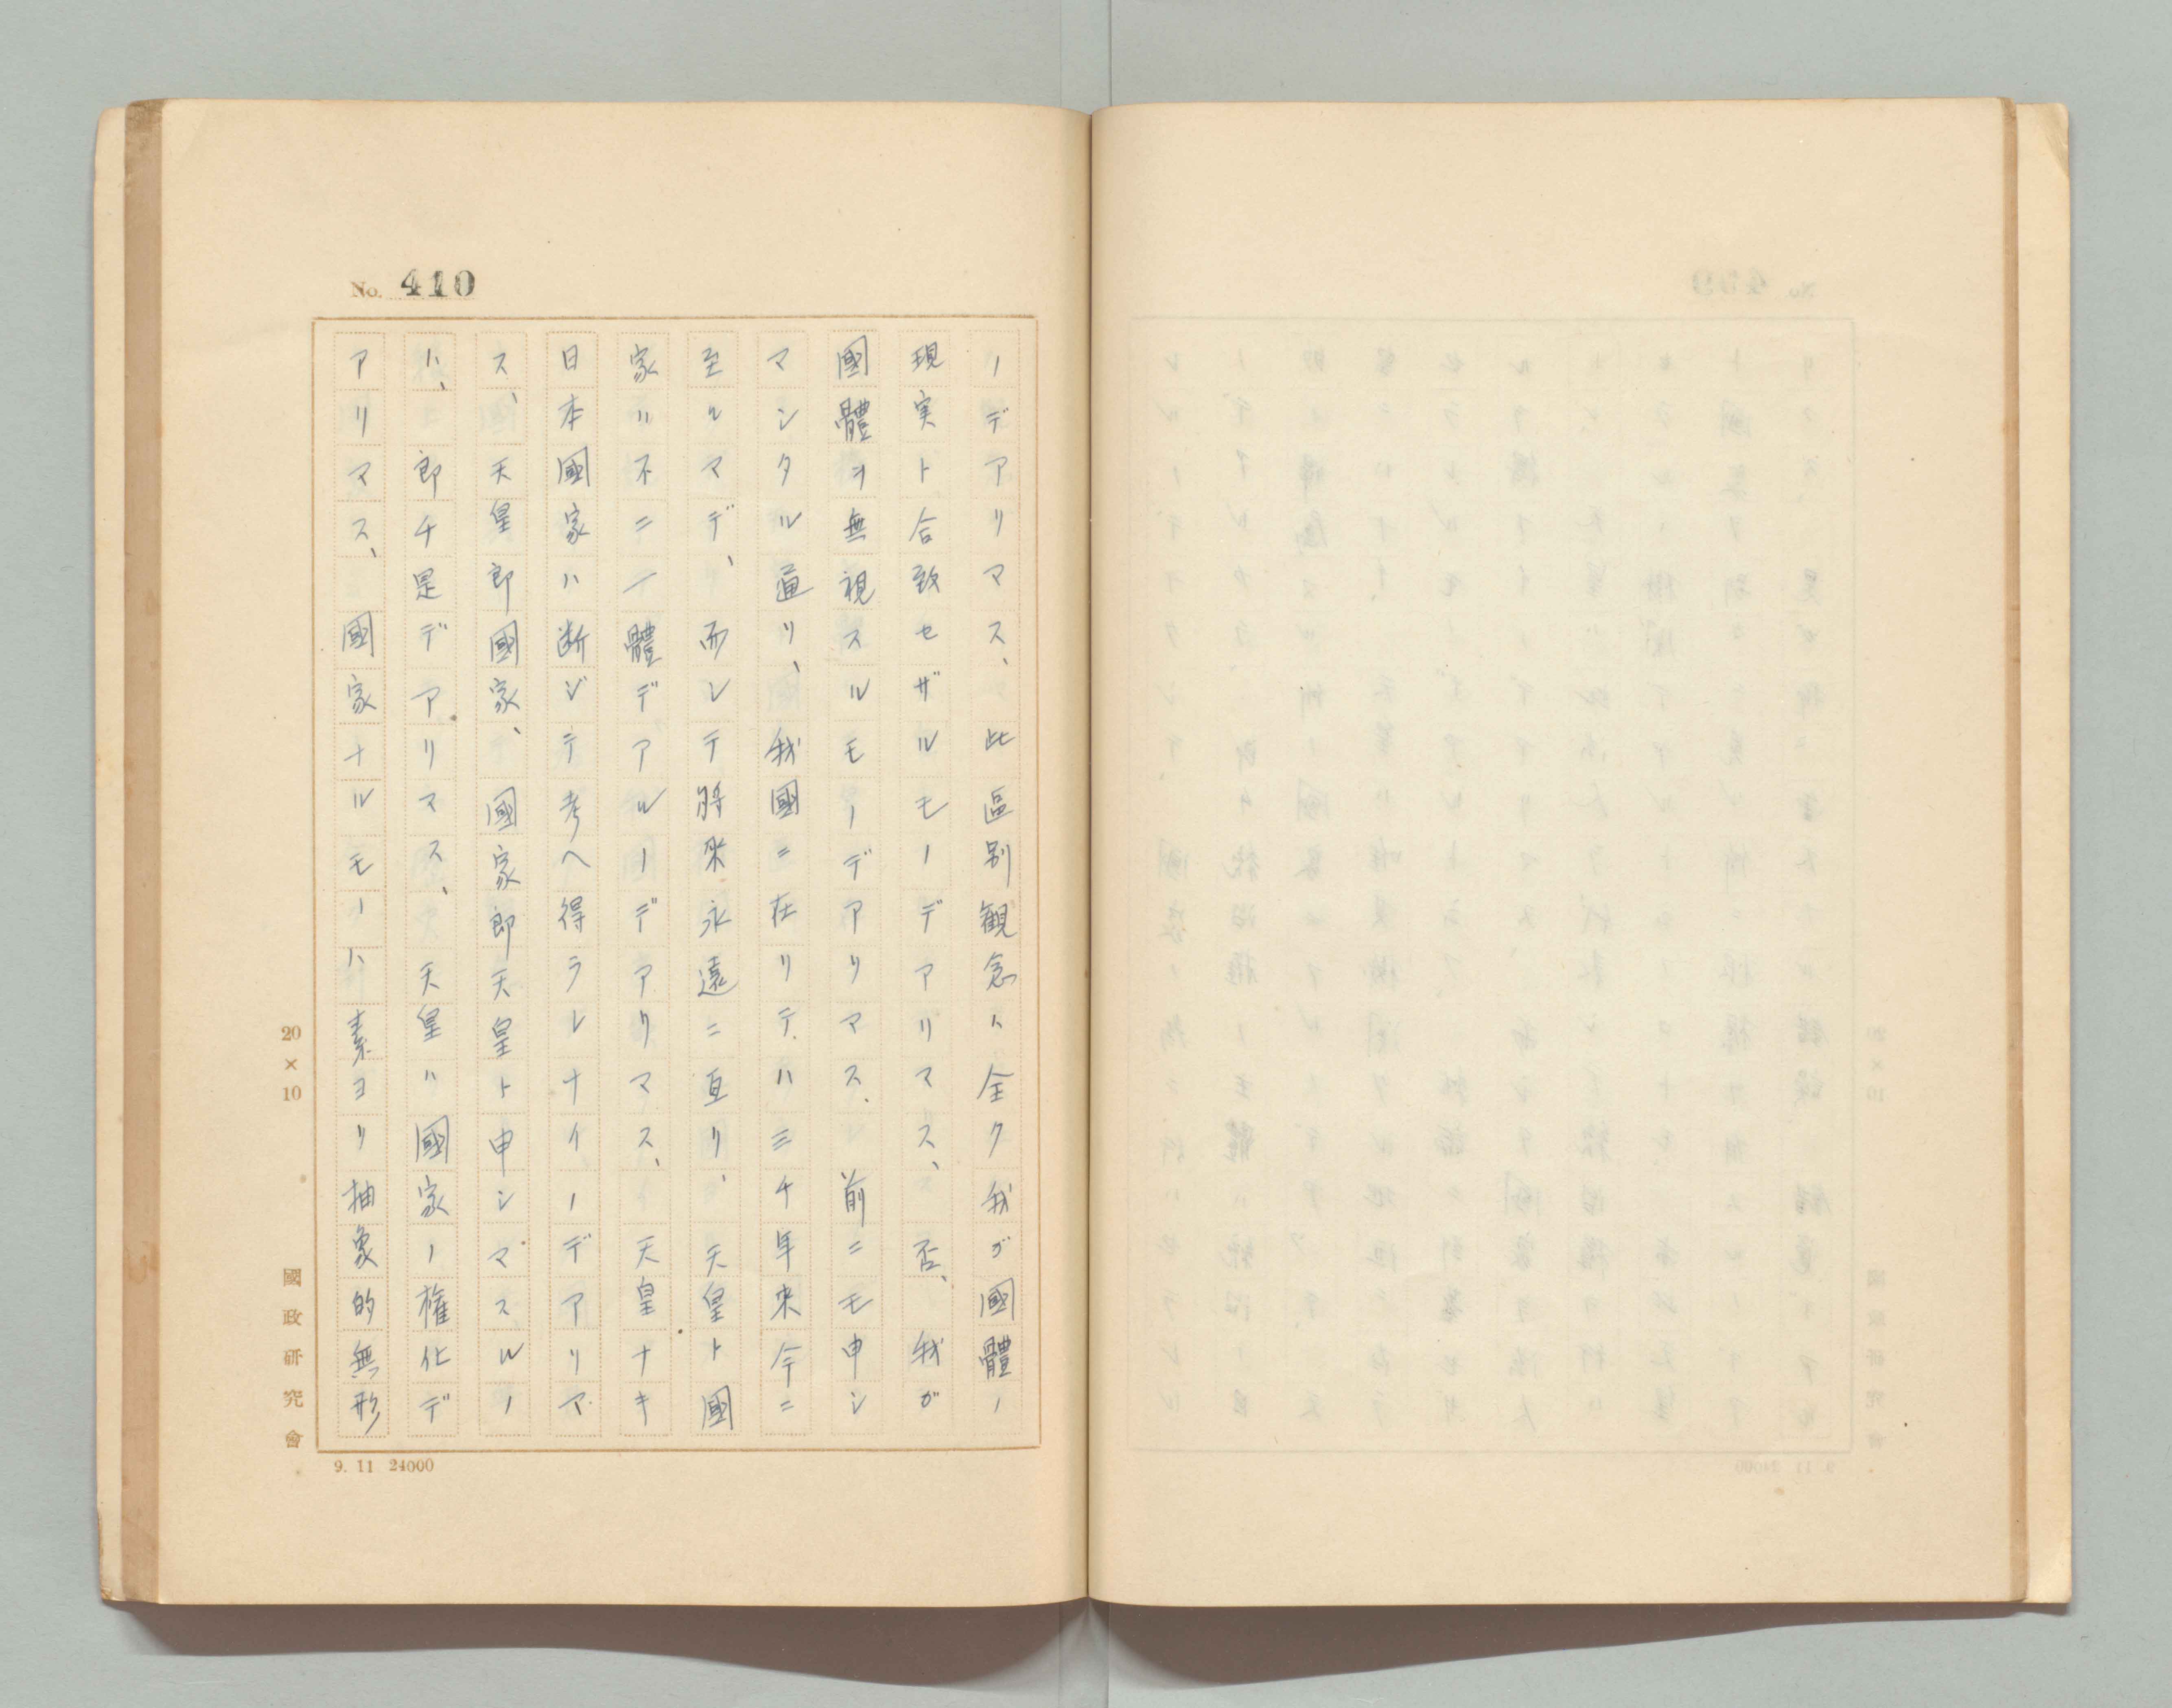 No. 410
ノデアリマス、此區別観念ハ全ク我ガ國體ノ
現実ト合致セザルモノデアリマス、否、我ガ
國體ヲ無視スルモノデアリマス、前ニモ申シ
マシタル通リ、我國ニ在リテハ三千年来今ニ
至ルマデ、而シテ将来永遠ニ亙リ、天皇ト國
家ハ不二一體デアルノデアリマス、天皇ナキ
日本國家ハ断ジテ考ヘ得ラレナイノデアリマ
ス、天皇即國家、國家即天皇ト申シマスルノ
ハ、即チ是デアリマス、天皇ハ國家ノ権化デ
アリマス、國家ナルモノハ素ヨリ抽象的無形
20×10
國政研究會
9. 11 24000